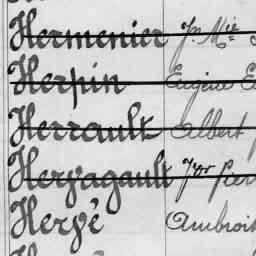 Hermenier Jn Mie
Herpin Eugène E
Herrault Albert
Hervagault Yor Pier
Hervé Ambroi